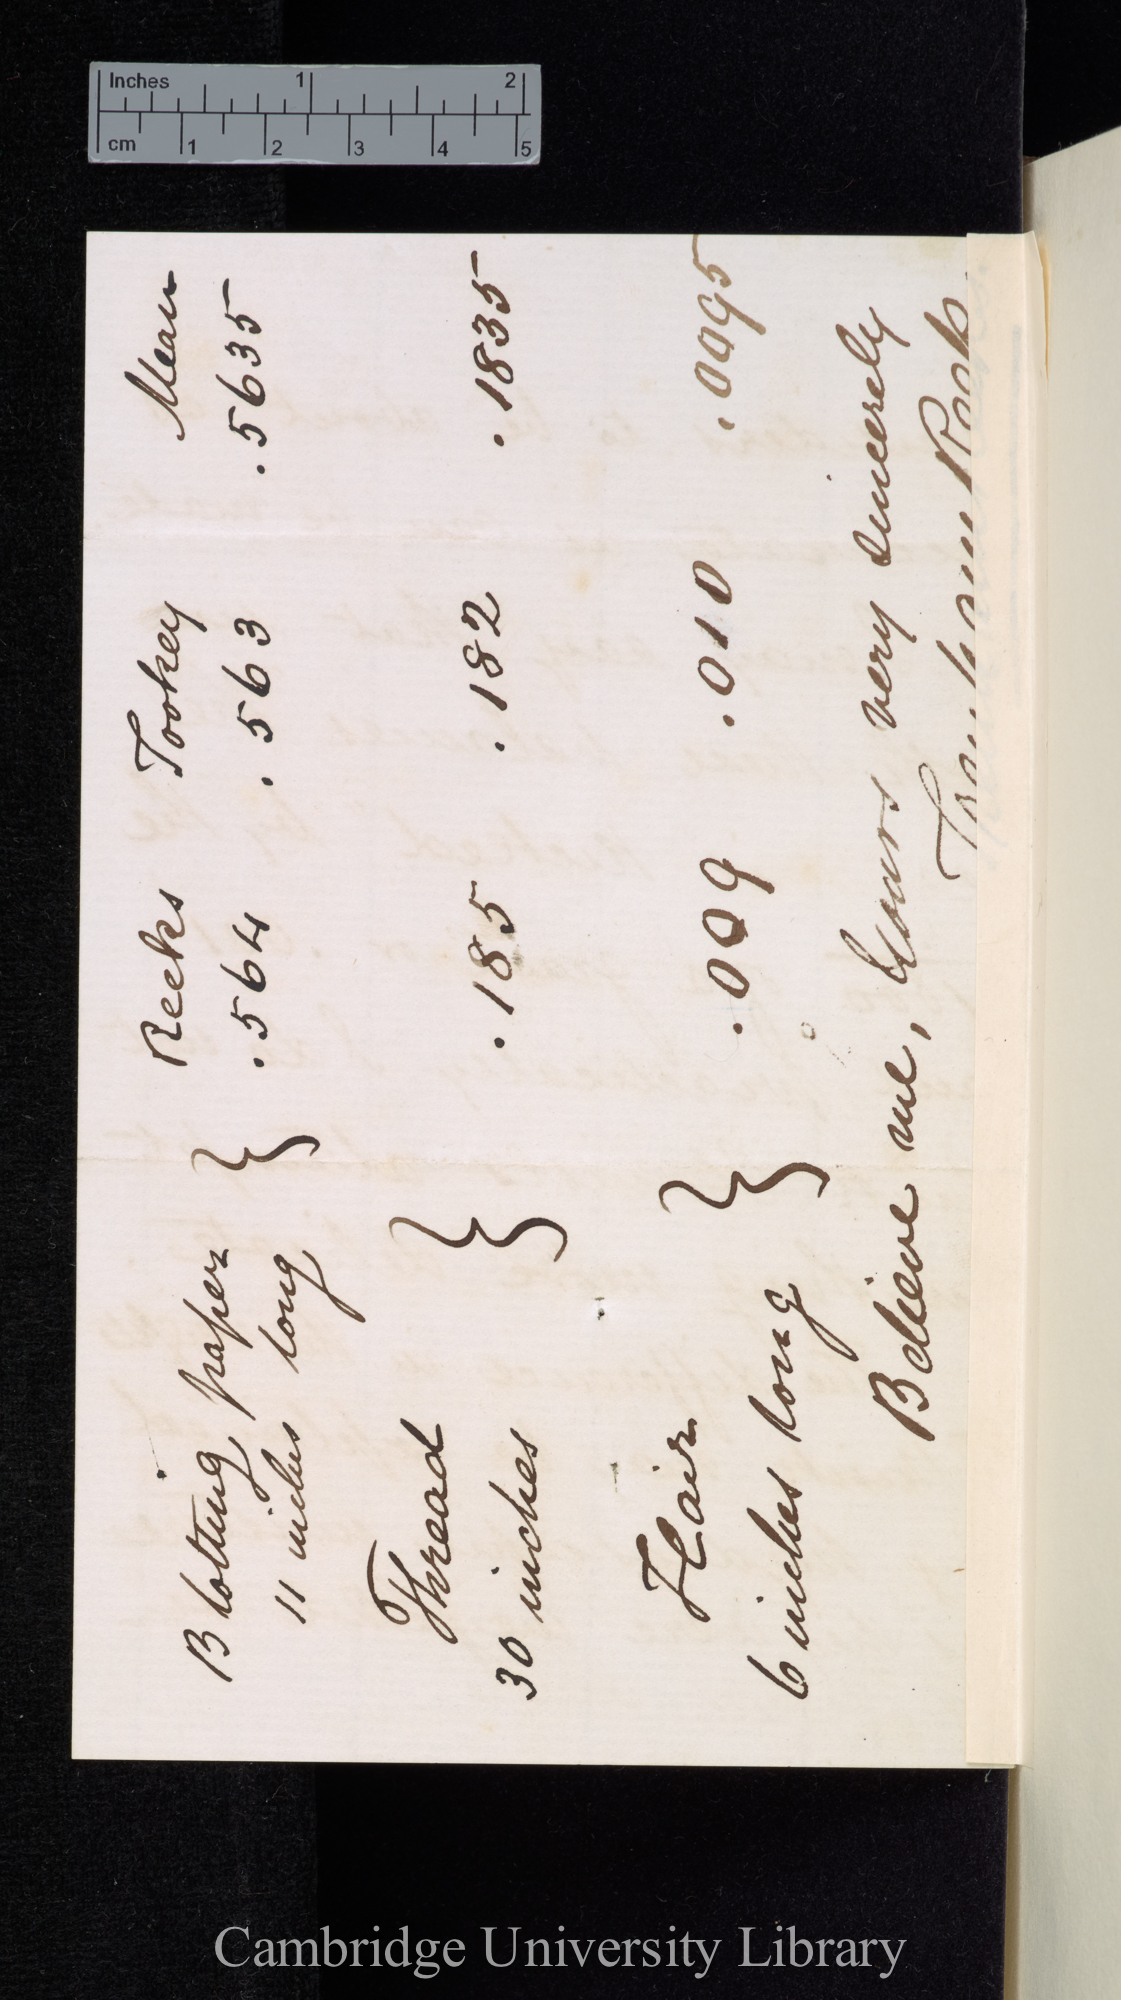 Inches 1 2
cm 1 2 3 4 5
Reeks Tookey Mean
Blotting paper
11 inches long } .564 .563 .5635
Thread
30 inches } .185 .182 .1835
Hair
6 inches long } .009 .010 .0095
Believe me, Yours very sincerely
Trenham Reeks
Cambridge University Library